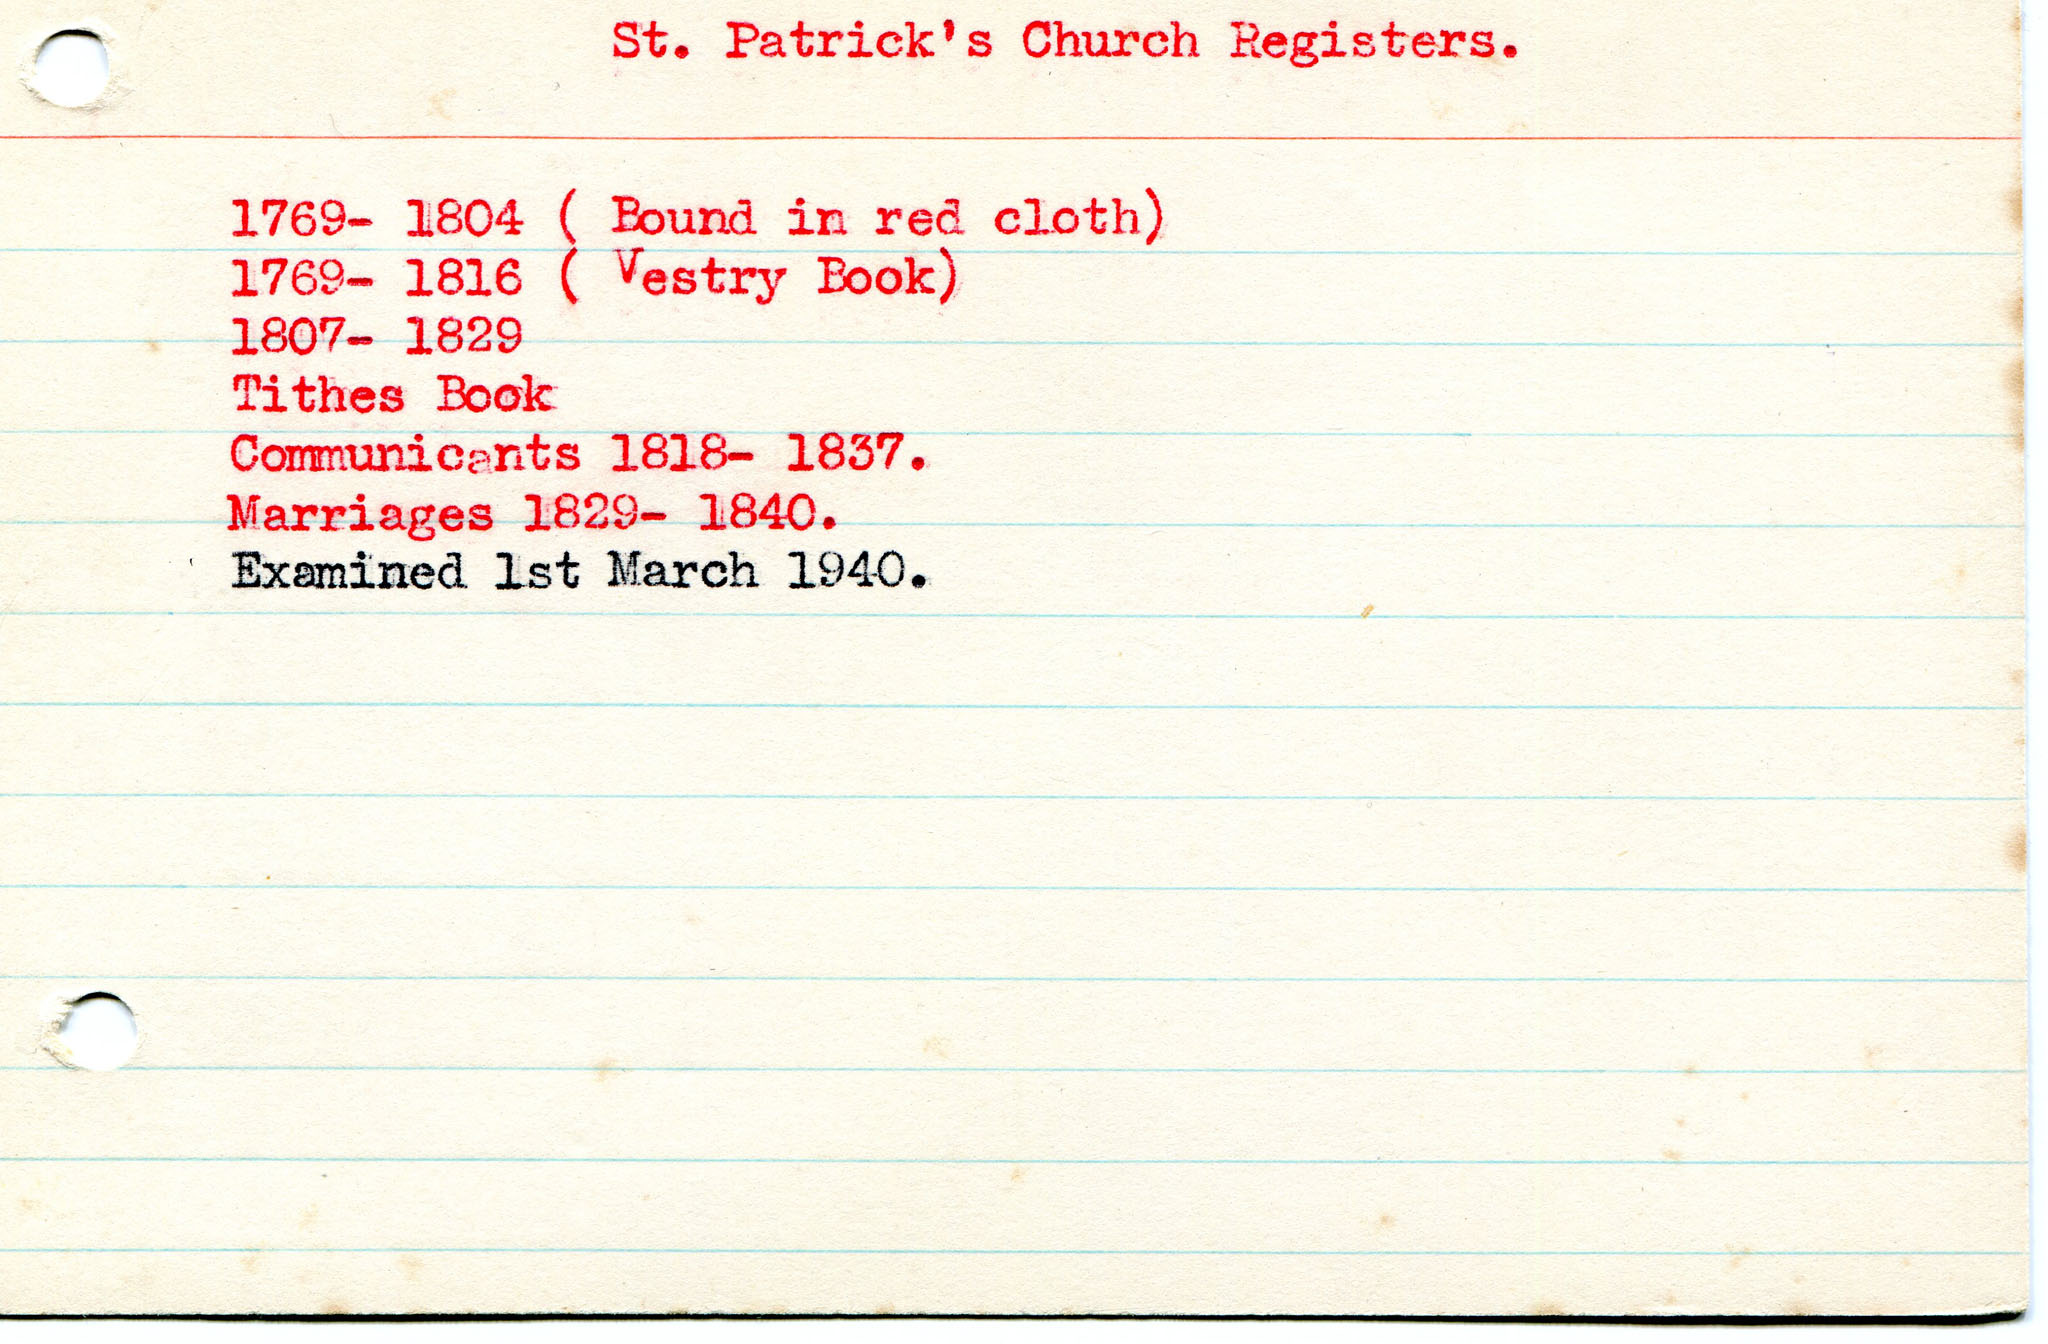 St. Patrick's Church Registers.
1769- 1804 ( Bound in red cloth)
1769- 1816 ( Vestry Book)
1807- 1829
Tithes Book
Communicants 1818- 1837.
Marriages 1829- 1840.
Examined 1st March 1940.